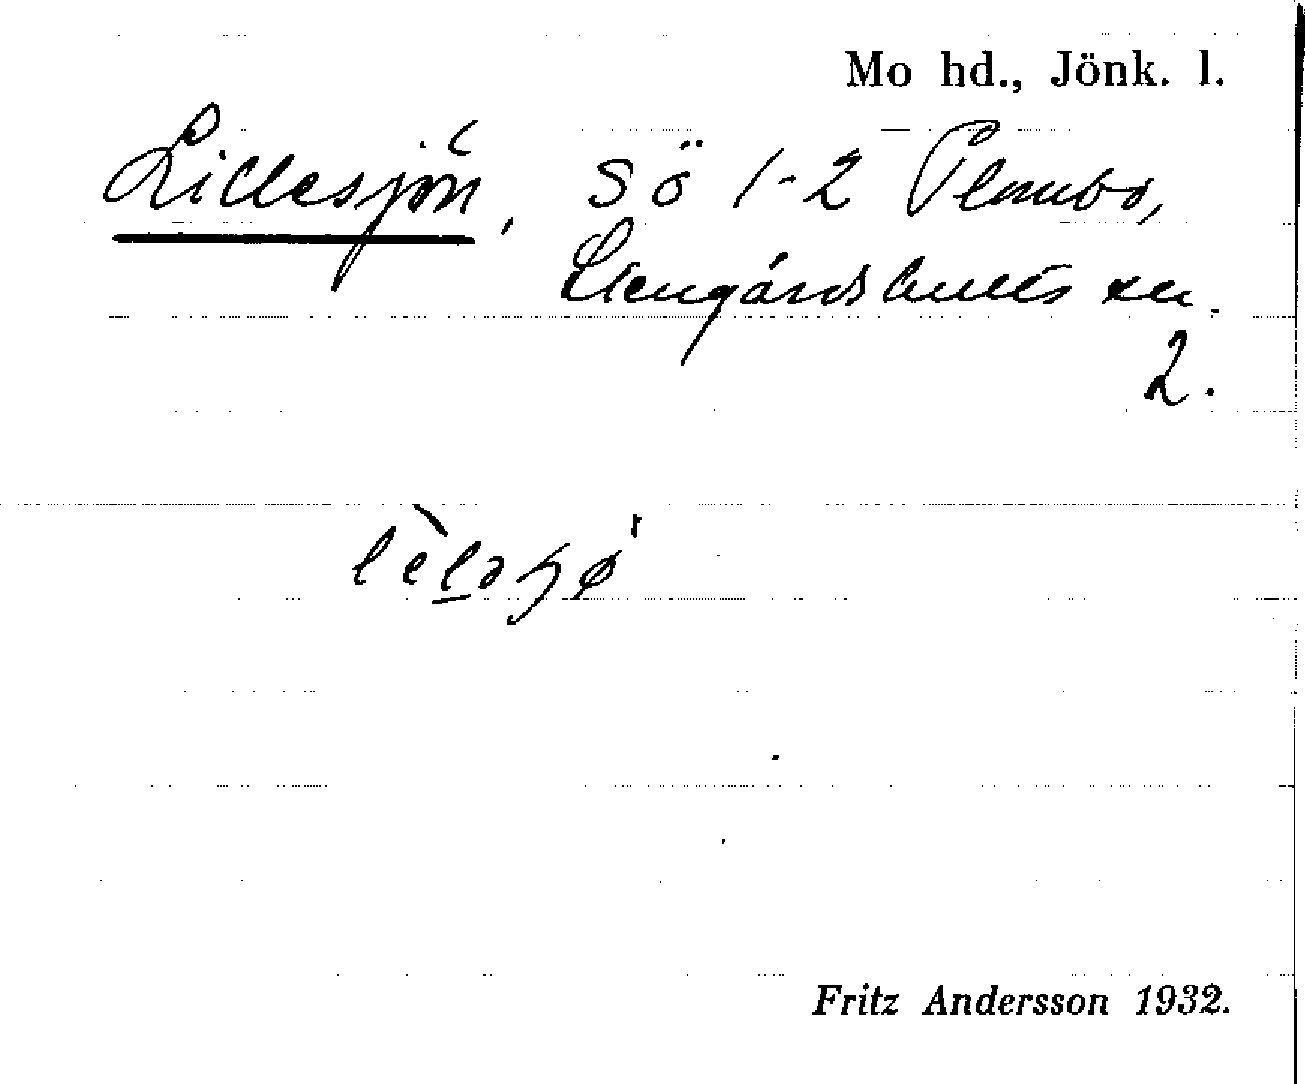 Mo hd., Jönk. l.
Lillesjön, sö 1-2 Plambo,
Stengårdshults sn.
2.
Fritz Andersson 1932.